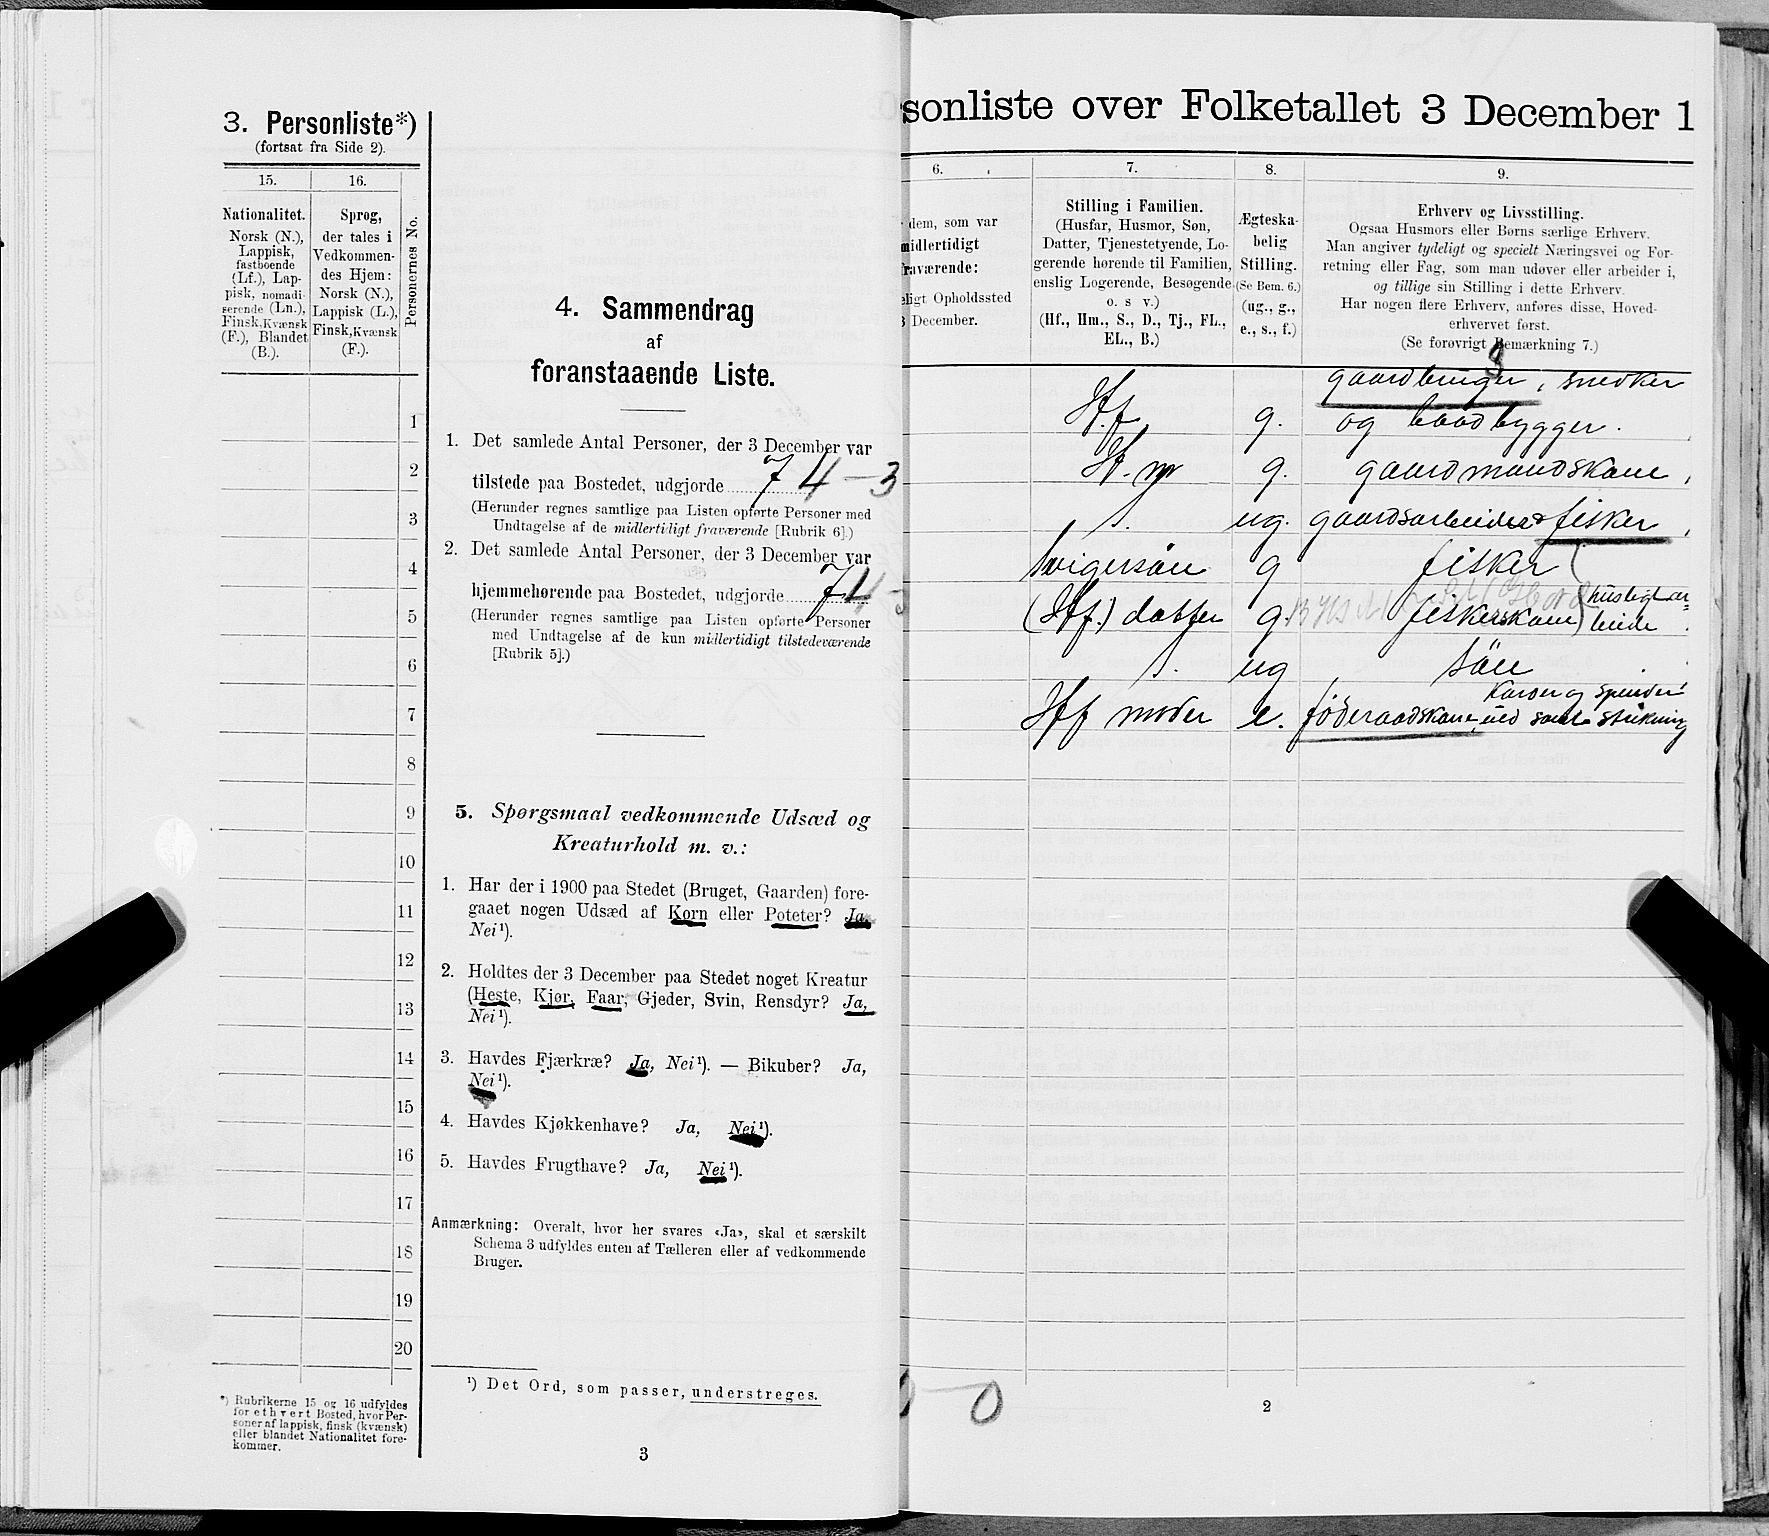 3. Personliste*)
(fortsat fra Side 2).
15.
16.
Personernes No.
Nationalitet.
Norsk (N.),
Lappisk,
fastboende
(Lf.), Lap-
pisk, nomadi-
serende (Ln.),
Finsk, Kvænsk
(F.), Blandet
(B.).
Sprog,
der tales i
Vedkommen-
des Hjem:
Norsk (N.),
Lappisk (L.),
Finsk, Kvænsk
(F.).
1
2
3
4
5
6
7
8
9
10
11
12
13
14
15
16
17
18
19
20
*) Rubrikerne 15 og 16 udfyldes
for ethvert Bosted, hvor Per-
soner af lappisk, finsk (kvænsk)
eller blandet Nationalitet fore-
kommer.
4. Sammendrag
af
foranstaaende Liste.
1. Det samlede Antal Personer, der 3 December var
tilstede paa Bostedet, udgjorde 7 4 – 3
(Herunder regnes samtlige paa Listen opførte Personer med
Undtagelse af de midlertidigt fraværende [Rubrik 6].)
2. Det samlede Antal Personer, der 3 December var
hjemmehørende paa Bostedet, udgjorde 7 4 – 3
(Herunder regnes samtlige paa Listen opførte Personer
med Undtagelse af de kun midlertidigt tilstedeværende
[Rubrik 5].)
5. Spørgsmaal vedkommende Udsæd og
Kreaturhold m. v.:
1. Har der i 1900 paa Stedet (Bruget, Gaarden) fore-
gaaet nogen Udsæd af Korn eller Poteter? Ja,
Nei¹).
2. Holdtes der 3 December paa Stedet noget Kreatur
(Heste, Kjør, Faar, Gjeder, Svin, Rensdyr? Ja,
Nei¹).
3. Havdes Fjærkræ? Ja, Nei¹). — Bikuber? Ja,
Nei¹).
4. Havdes Kjøkkenhave? Ja, Nei¹).
5. Havdes Frugthave? Ja, Nei¹).
Anmærkning: Overalt, hvor her svares «Ja», skal et særskilt
Schema 3 udfyldes enten af Tælleren eller af vedkommende
Bruger.
¹) Det Ord, som passer, understreges.
3
sonliste over Folketallet 3 December 1
6.
7.
8.
9.
dem, som var
midlertidigt
fraværende:
eligt Opholdssted
3 December.
Stilling i Familien.
(Husfar, Husmor, Søn,
Datter, Tjenestetyende, Lo-
gerende hørende til Familien,
enslig Logerende, Besøgende
o. s v.)
(Hf., Hm., S., D., Tj., FL.,
EL., B.)
Ægteska-
belig
Stilling.
(Se Bem. 6.)
(ug., g.,
e., s., f.)
Erhverv og Livsstilling.
Ogsaa Husmors eller Børns særlige Erhverv.
Man angiver tydeligt og specielt Næringsvei og For-
retning eller Fag, som man udøver eller arbeider i,
og tillige sin Stilling i dette Erhverv.
Har nogen flere Erhverv, anføres disse, Hoved-
erhvervet først.
(Se forøvrigt Bemærkning 7.)
gaardbruger, snedker
H.f. g. og baadbygger.
H. m g. gaardmandskone
s. ug. gaardsarbeider & fisker
Svigersøn g fisker
(Hf.) datter g. fiskerskone) husligt ar=
beide
s. ug søn
Hf moder e. føderaadskone, karder og spinder
med samt strikning
0 – 0
2